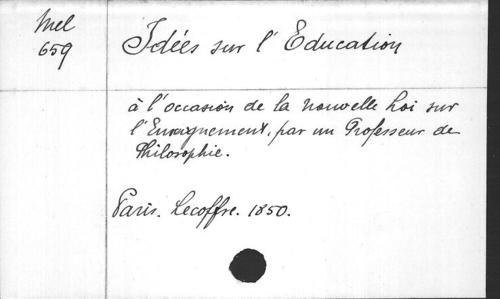 Mel
659
Idées sur l'Education
à l'occasion de la nouvelle Loi sur
l'Enseignement, par un Professeur de
Philosophie.
Paris. Lecoffre. 1850.